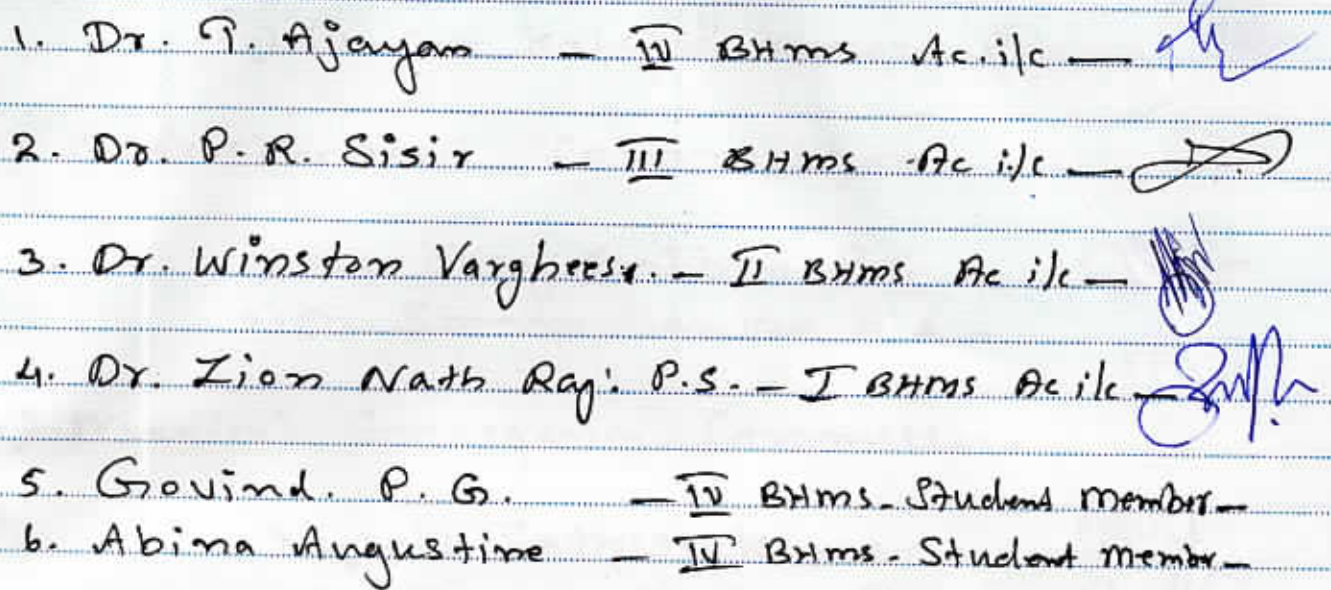 1. Dr. T. Ajayan - IV BHMS Ac. i/c -
2. Dr. P. R. Sisir - III BHMS Ac i/c -
3. Dr. Winston Vargheese. - II BHMS Ac i/c -
4. Dr. Zion Nath Raj. P.S. - I BHMS Ac i/c -
5. Govind. P. G. - IV BHMS - Student Member -
6. Abina Augustine - IV BHMS - Student Member -